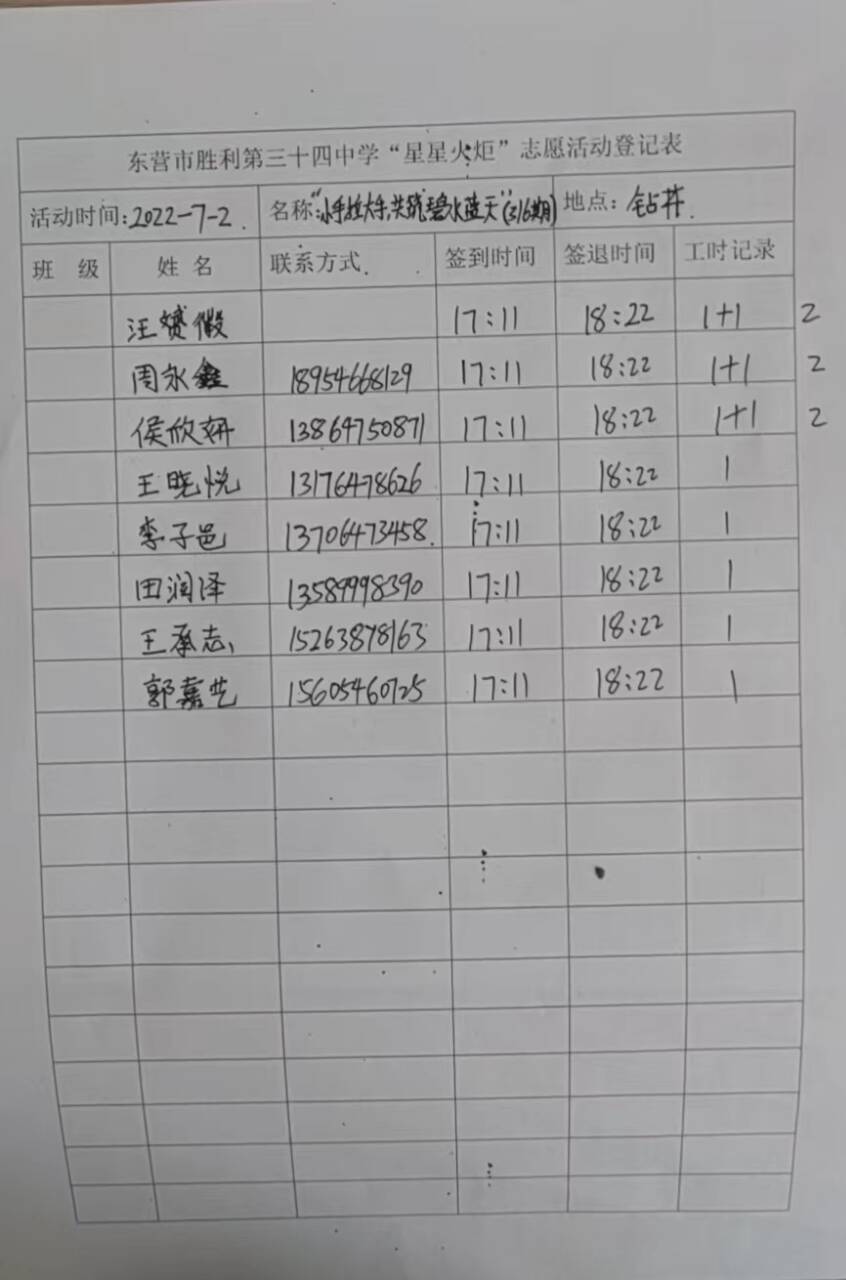 东营市胜利第三十四中学“星星火炬”志愿活动登记表
活动时间:2022-7-2. 名称:“小手拉大手,共筑碧水蓝天”(316期) 地点:钻井.
班 级 姓 名 联系方式. 签到时间 签退时间 工时记录
汪赟 17:11 18:22 1+1 2
周永鑫 18954668129 17:11 18:22 1+1 2
侯欣妍 13864750871 17:11 18:22 1+1 2
王晓悦 13176478626 17:11 18:22 1
李子邑 13706473458. 17:11 18:22 1
田润泽 13589998390 17:11 18:22 1
王承志 15263878163 17:11 18:22 1
郭嘉艺 15605460725 17:11 18:22 1